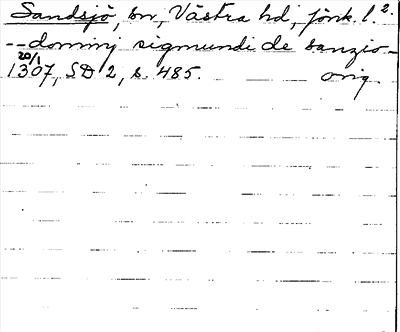 Sandsjö, sn, Västra hd, Jönk. l. 2.
-- dominj sigmundi de sanzio --
20/1
1307, SD 2, s. 485. orig.